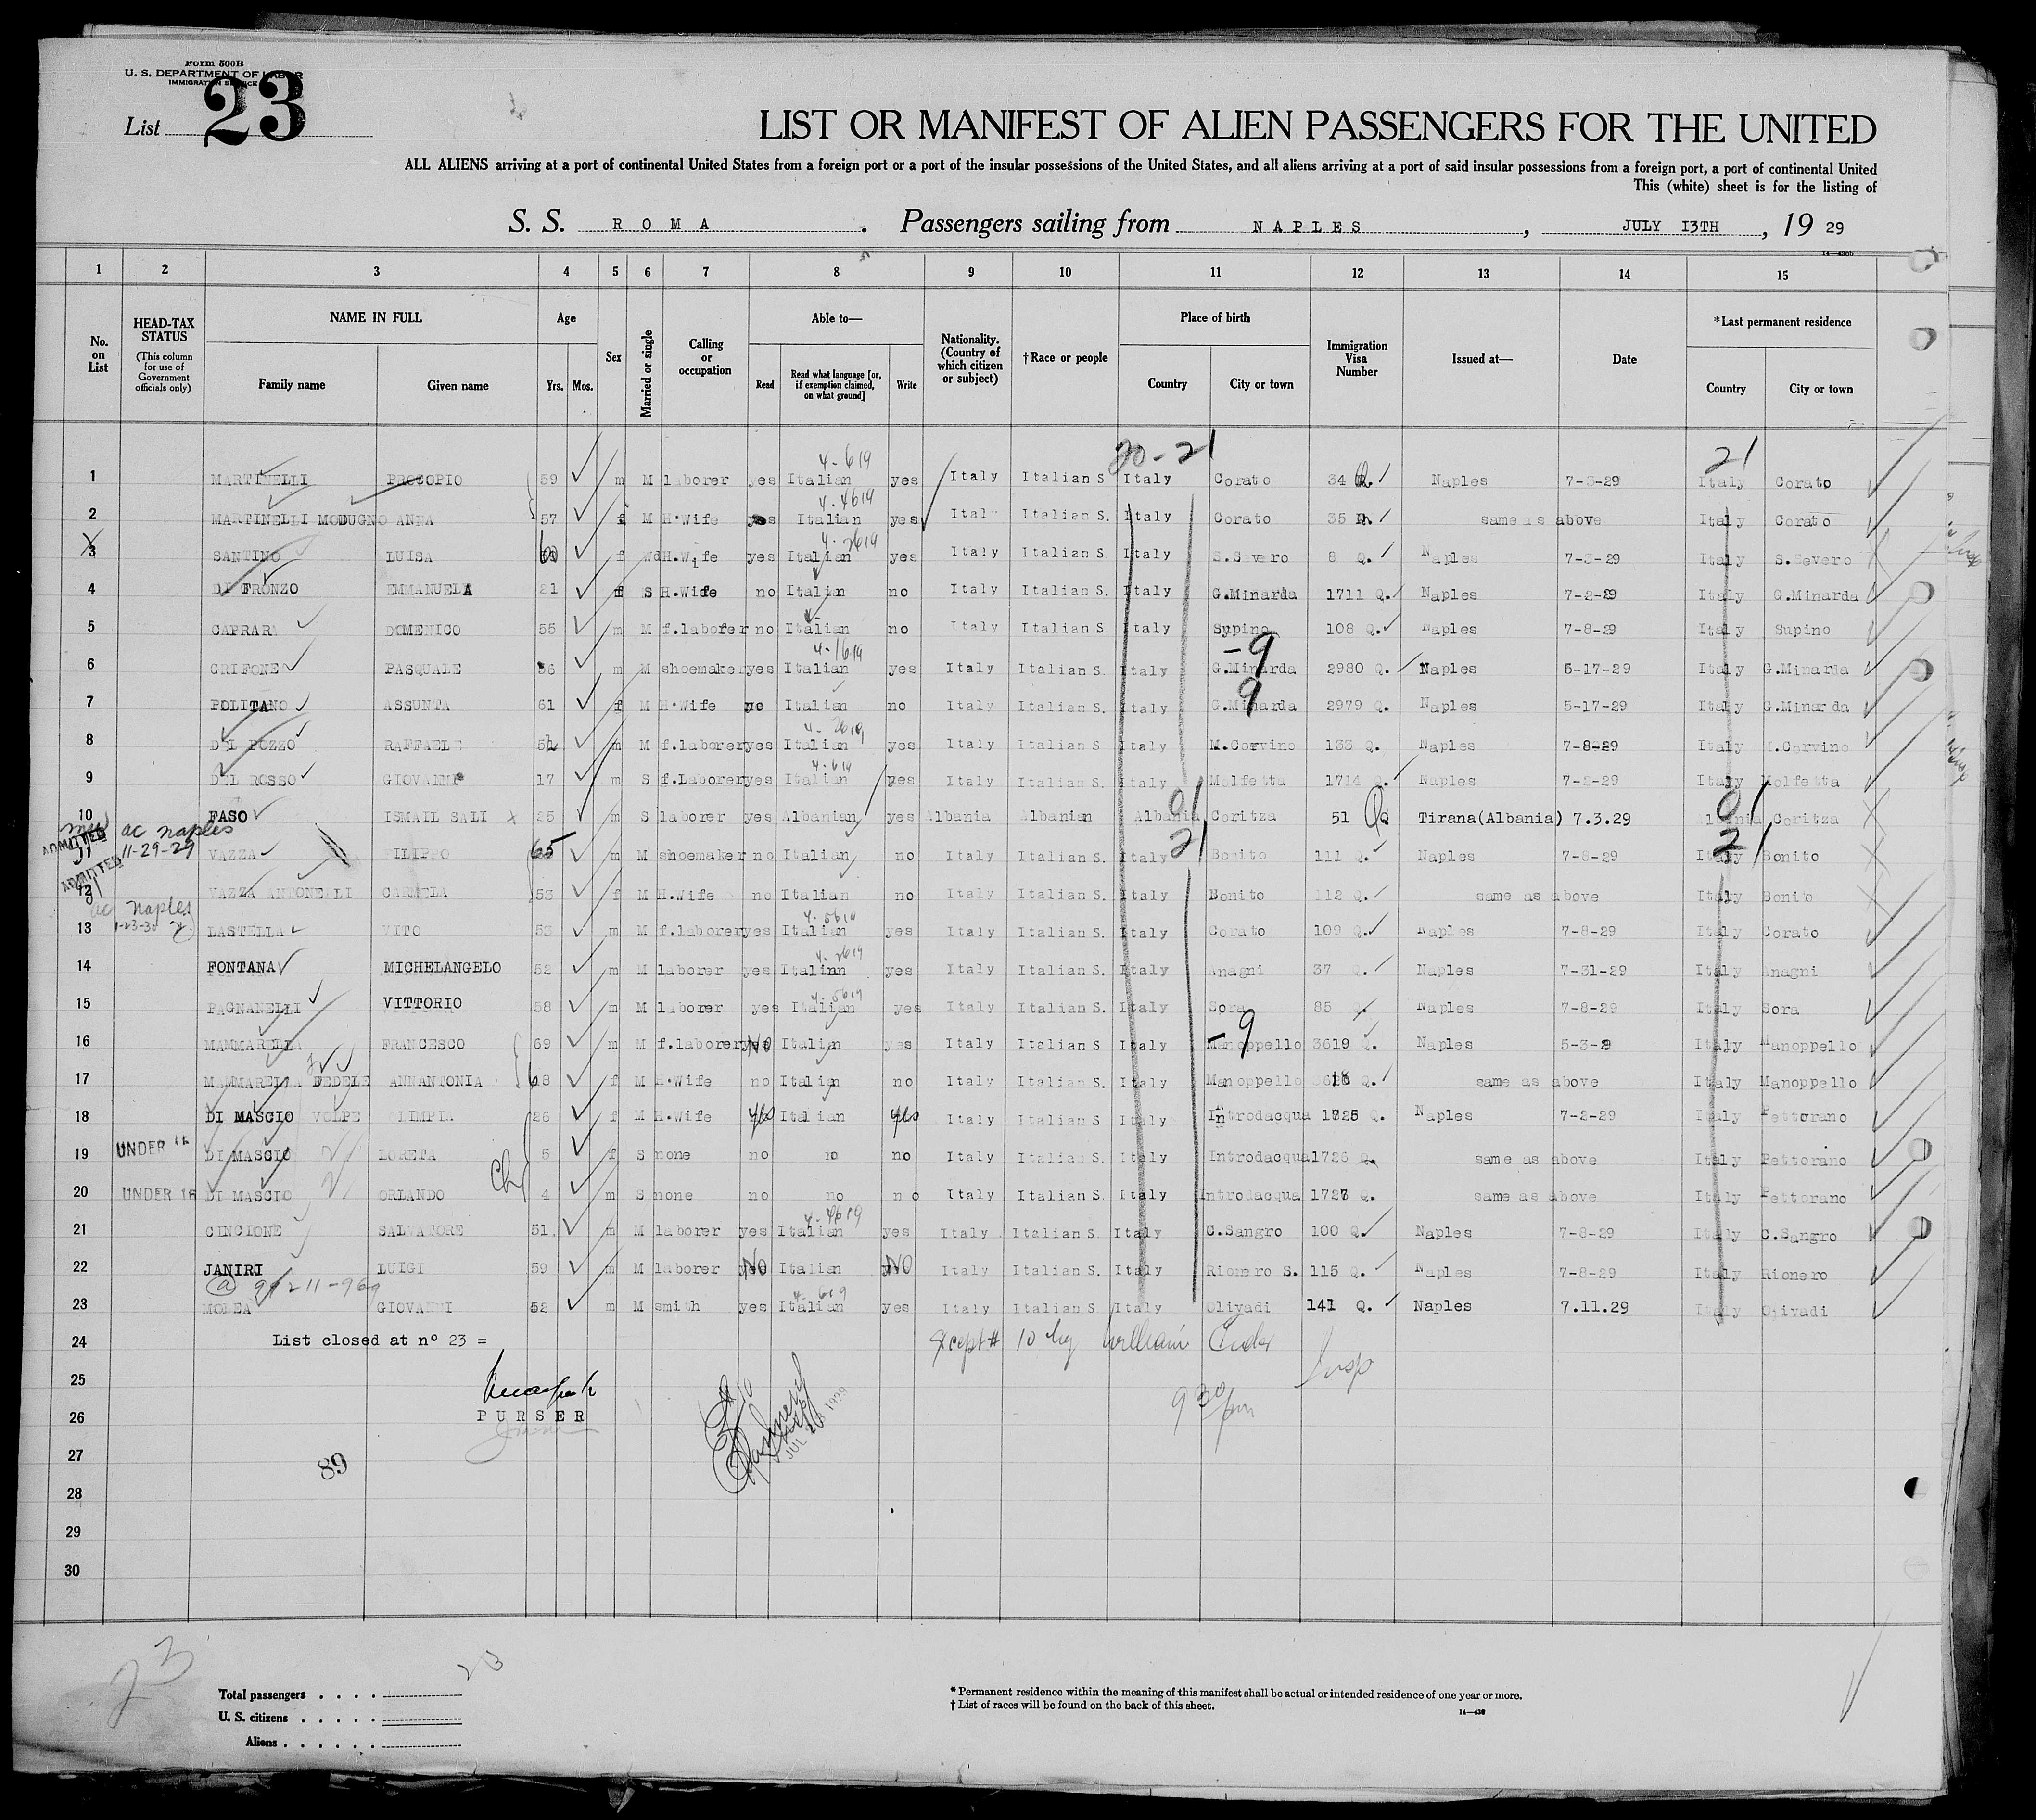 Form 500B
U. S. DEPARTMENT OF LABOR
IMMIGRATION SERVICE
List 23
LIST OR MANIFEST OF ALIEN PASSENGERS FOR THE UNITED
ALL ALIENS arriving at a port of continental United States from a foreign port or a port of the insular possessions of the United States, and all aliens arriving at a port of said insular possessions from a foreign port, a port of continental United
This (white) sheet is for the listing of
S. S. ROMA. Passengers sailing from NAPLES, JULY 13TH, 19 29
14—430b
1 2 3 4 5 6 7 8 9 10 11 12 13 14 15
No. on List
HEAD-TAX STATUS (This column for use of Government officials only)
NAME IN FULL Family name Given name
Age Yrs. Mos.
Sex
Married or single
Calling or occupation
Able to— Read Read what language [or, if exemption claimed, on what ground] Write
Nationality. (Country of which citizen or subject)
†Race or people
Place of birth Country City or town
Immigration Visa Number
Issued at—
Date
*Last permanent residence Country City or town
20-21 21
4-619
1 MARTINELLI PROCOPIO 59 m M laborer yes Italian yes Italy Italian S Italy Corato 34 Q. Naples 7-3-29 Italy Corato
4-4619
2 MARTINELLI MODUGNO ANNA 57 f M H.Wife yes Italian yes Italy Italian S. Italy Corato 35 Q. same as above Italy Corato
4-2619
3 SANTINO LUISA f Wd H.Wife yes Italian yes Italy Italian S. Italy S.Severo 8 Q. Naples 7-3-29 Italy S.Severo
4 DI FRONZO EMMANUELA 21 f S H.Wife no Italian no Italy Italian S. Italy G.Minarda 1711 Q. Naples 7-2-29 Italy G.Minarda
5 CAPRARA DOMENICO 55 m M f.laborer no Italian no Italy Italian S. Italy Supino 108 Q. Naples 7-8-29 Italy Supino
4-1619 -9
6 GRIFONE PASQUALE 36 m M shoemaker yes Italian yes Italy Italian S. Italy G.Minarda 2980 Q. Naples 5-17-29 Italy G.Minarda
9
7 POLITANO ASSUNTA 61 f M H.Wife no Italian no Italy Italian S. Italy G.Minarda 2979 Q. Naples 5-17-29 Italy G.Minarda
8 DEL POZZO RAFFAELE m M f.laborer yes Italian yes Italy Italian S Italy M.Corvino 133 Q. Naples 7-8-29 Italy M.Corvino
4-619
9 DEL ROSSO GIOVANNI 17 m S f.Laborer yes Italian yes Italy Italian S. Italy Molfetta 1714 Q. Naples 7-2-29 Italy Molfetta
01 01
10 FASO ISMAIL SALI x 25 m S laborer yes Albanian yes Albania Albanian Albania Coritza 51 Q Tirana(Albania) 7.3.29 Albania Coritza
ADMITTED ac naples 11-29-29 21 21
11 VAZZA FILIPPO 65 m M shoemaker no Italian no Italy Italian S. Italy Bonito 111 Q. Naples 7-8-29 Italy Bonito
ADMITTED
12 VAZZA ANTONELLI CARMELA 53 f M H.Wife no Italian no Italy Italian S. Italy Bonito 112 Q. same as above Italy Bonito
ac naples 1-23-30
13 LASTELLA VITO 53 m M f.laborer yes Italian yes Italy Italian S. Italy Corato 109 Q. Naples 7-8-29 Italy Corato
4-2619
14 FONTANA MICHELANGELO 52 m M laborer yes Italian yes Italy Italian S. Italy Anagni 37 Q. Naples 7-31-29 Italy Anagni
15 PAGNANELLI VITTORIO 58 m M laborer yes Italian yes Italy Italian S. Italy Sora 85 Naples 7-8-29 Italy Sora
-9
16 MAMMARELLA FRANCESCO 69 m M f.laborer NO Italian yes Italy Italian S Italy Manoppello 3619 Q. Naples 5-3-29 Italy Manoppello
17 MAMMARELLA FEDELE ANNANTONIA 68 f M H.Wife no Italian no Italy Italian S Italy Manoppello 3618 Q. same as above Italy Manoppello
18 DI MASCIO VOLPE OLIMPIA 26 f M H.Wife yes Italian yes Italy Italian S Italy Introdacqua 1725 Q. Naples 7-2-29 Italy Pettorano
19 UNDER 16 DI MASCIO LORETA 5 f S none no no no Italy Italian S. Italy Introdacqua 1726 Q. same as above Italy Pettorano
Ch
20 UNDER 16 DI MASCIO ORLANDO 4 m S none no no no Italy Italian S. Italy Introdacqua 1727 Q. same as above Italy Pettorano
4-4619
21 CINCIONE SALVATORE 51 m M laborer yes Italian yes Italy Italian S. Italy C.Sangro 100 Q. Naples 7-8-29 Italy C.Sangro
22 JANIRI LUIGI 59 m M laborer NO Italian NO Italy Italian S. Italy Rionero S. 115 Q. Naples 7-8-29 Italy Rionero
4-619
23 MOLEA GIOVANNI 52 m M smith yes Italian yes Italy Italian S Italy Olivadi 141 Q. Naples 7.11.29 Italy Olivadi
24 List closed at n° 23 = Except # 10 by William
25 Insp
26 PURSER 9 30 pm
JUL 1929
27 89
28
29
30
23
Total passengers 23
U. S. citizens
Aliens
* Permanent residence within the meaning of this manifest shall be actual or intended residence of one year or more.
† List of races will be found on the back of this sheet.
14—430